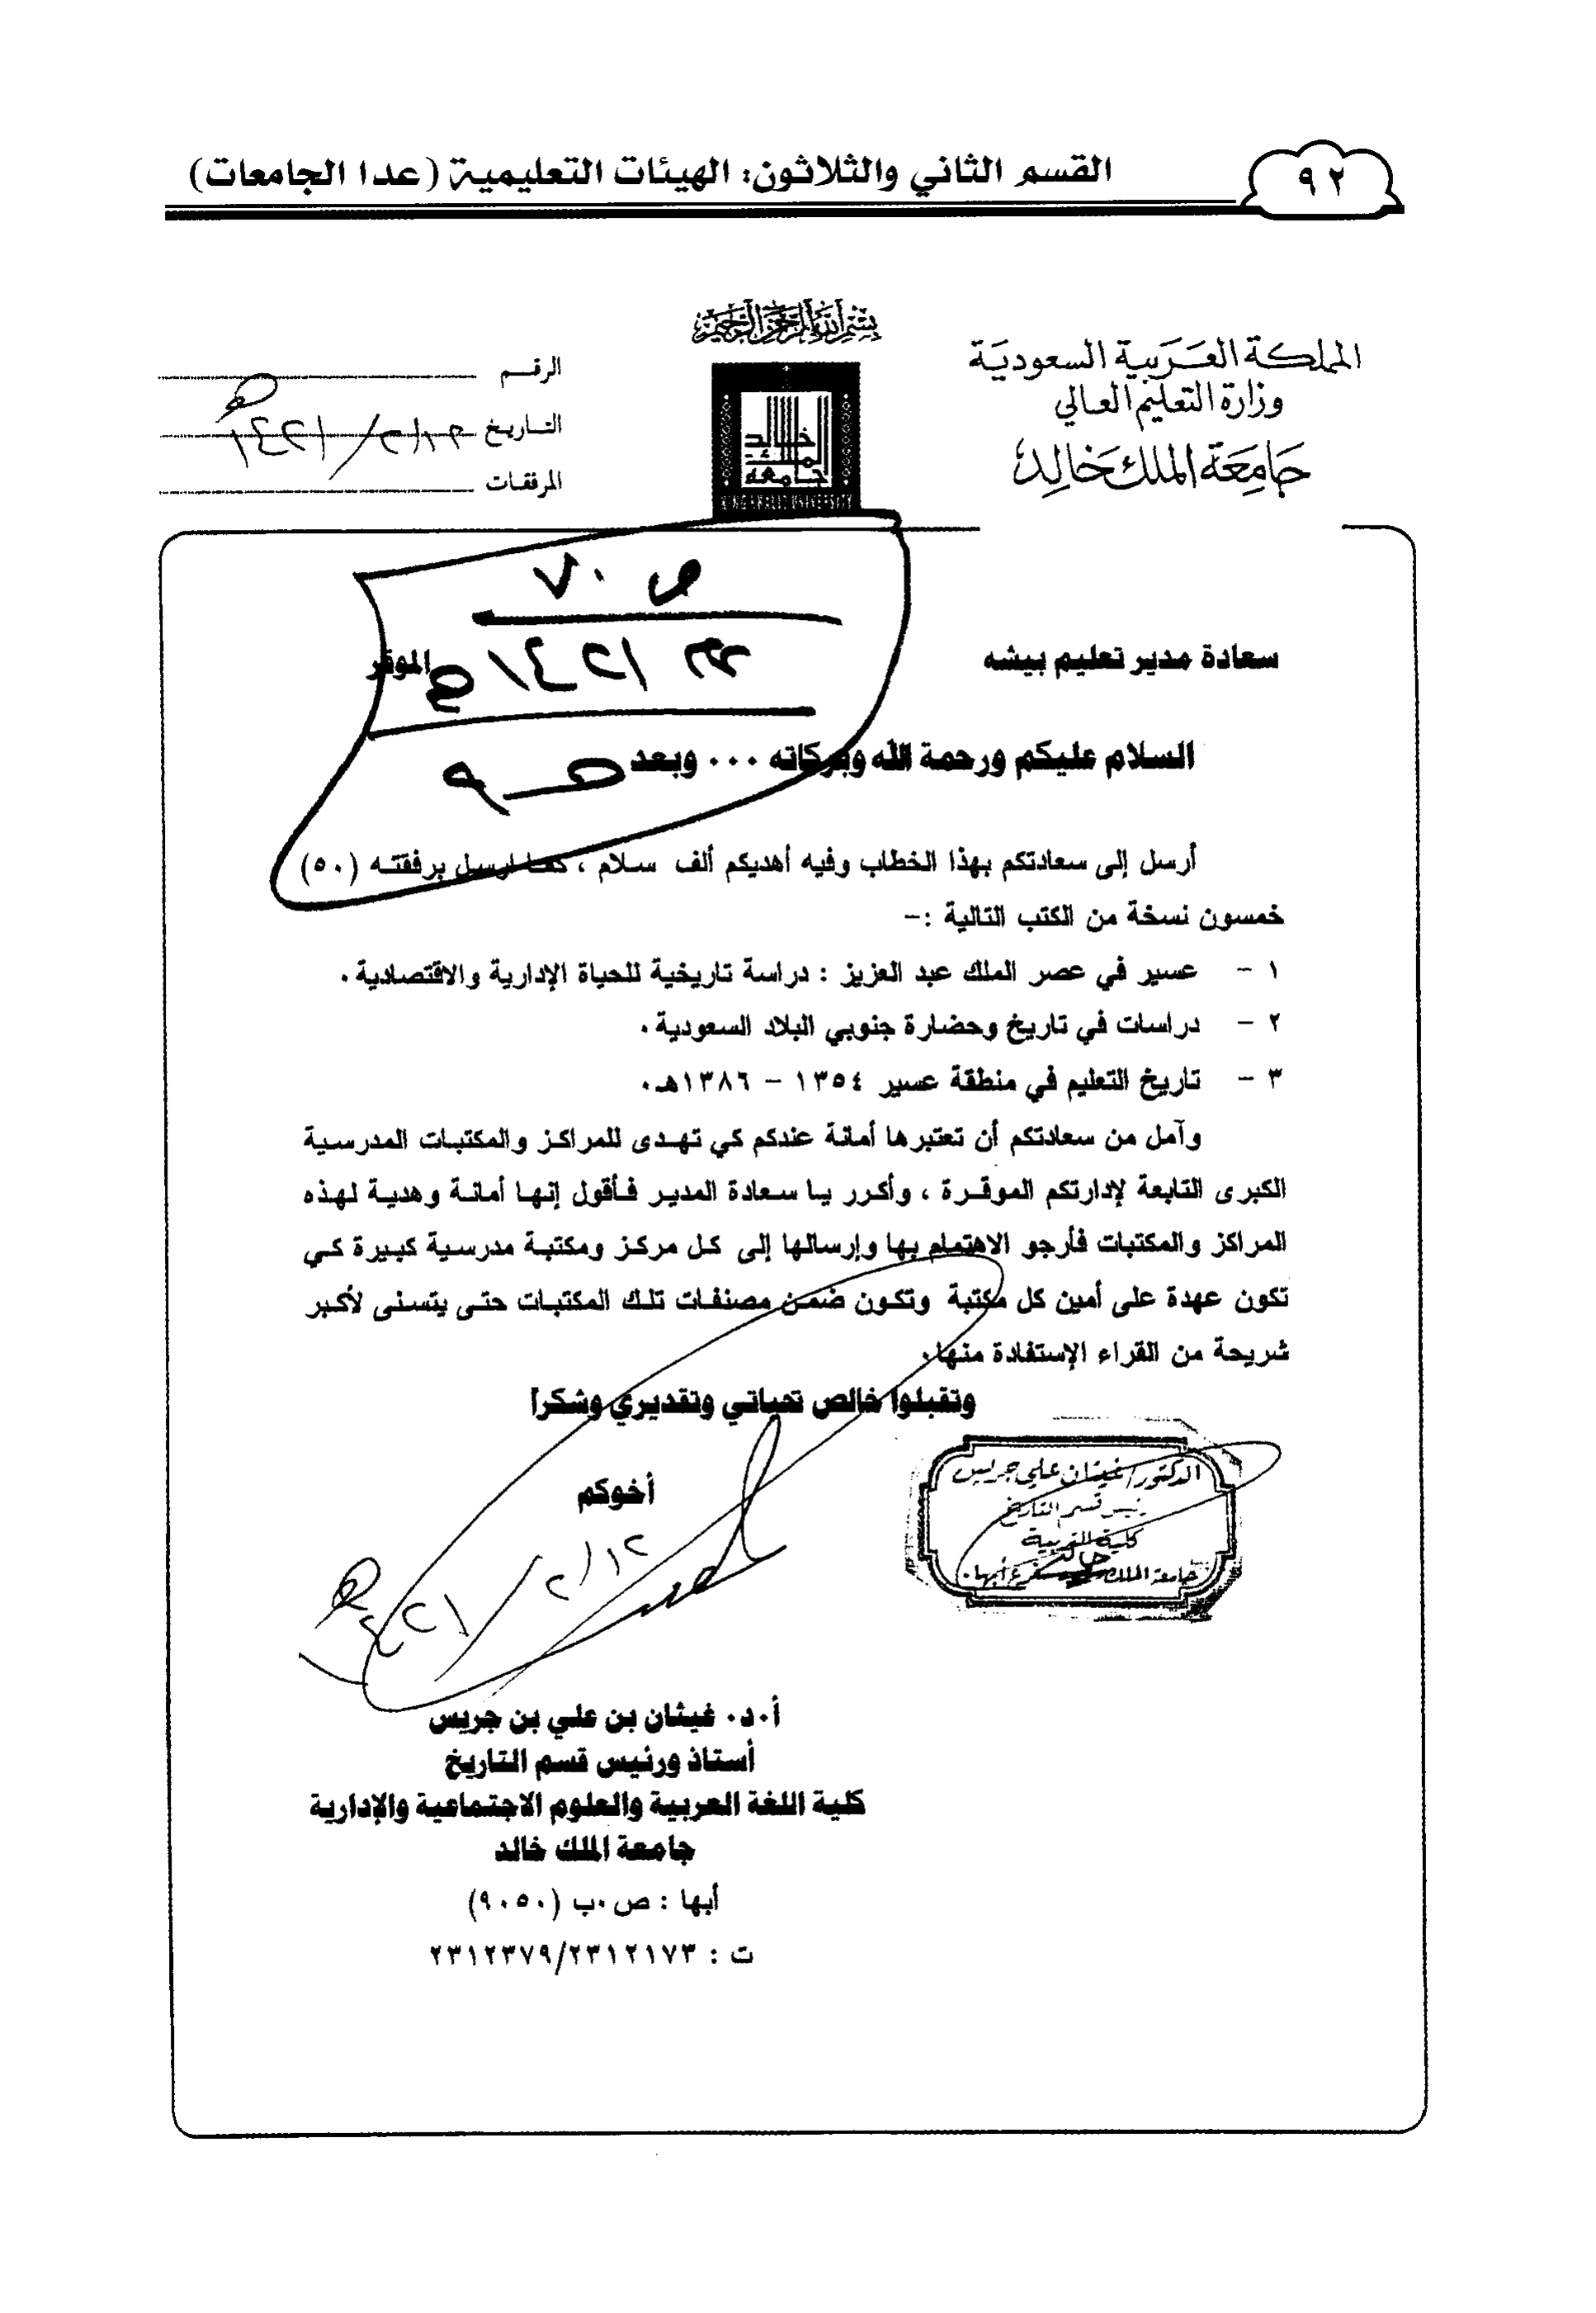 ٩٢
القسم الثاني والثلاثون: الهيئات التعليمية (عدا الجامعات)
بسم الله الرحمن الرحيم
المملكة العربية السعودية
وزارة التعليم العالي
جامعة الملك خالد
جامعة الملك خالد
KING KHALID UNIVERSITY
الرقم
التاريخ ١٢/٢/١٤٢١هـ
المرفقات
ص ٧٠
سعادة مدير تعليم بيشه الموقر
السلام عليكم ورحمة الله وبركاته ... وبعد
أرسل إلى سعادتكم بهذا الخطاب وفيه أهديكم ألف سلام ، كما ارسل برفقته (٥٠)
خمسون نسخة من الكتب التالية :-
١ - عسير في عصر الملك عبد العزيز : دراسة تاريخية للحياة الإدارية والاقتصادية .
٢ - دراسات في تاريخ وحضارة جنوبي البلاد السعودية .
٣ - تاريخ التعليم في منطقة عسير ١٣٥٤ - ١٣٨٦هـ.
وآمل من سعادتكم أن تعتبرها أمانة عندكم كي تهدى للمراكز والمكتبات المدرسية
الكبرى التابعة لإدارتكم الموقرة ، وأكرر يا سعادة المدير فأقول إنها أمانة وهدية لهذه
المراكز والمكتبات فأرجو الاهتمام بها وإرسالها إلى كل مركز ومكتبة مدرسية كبيرة كي
تكون عهدة على أمين كل مكتبة وتكون ضمن مصنفات تلك المكتبات حتى يتسنى لأكبر
شريحة من القراء الإستفادة منها.
وتقبلوا خالص تحياتي وتقديري وشكراً
الدكتور/ غيثان علي جريس
رئيس قسم التاريخ
كلية التربية
جامعة الملك خالد فرع أبها.
أخوكم
١٢/٢/١٤٢١هـ
أ.د. غيثان بن علي بن جريس
أستاذ ورئيس قسم التاريخ
كلية اللغة العربية والعلوم الاجتماعية والإدارية
جامعة الملك خالد
أبها : ص.ب (٩٠٥٠)
ت : ٢٣١٢٣٧٩/٢٣١٢١٧٣